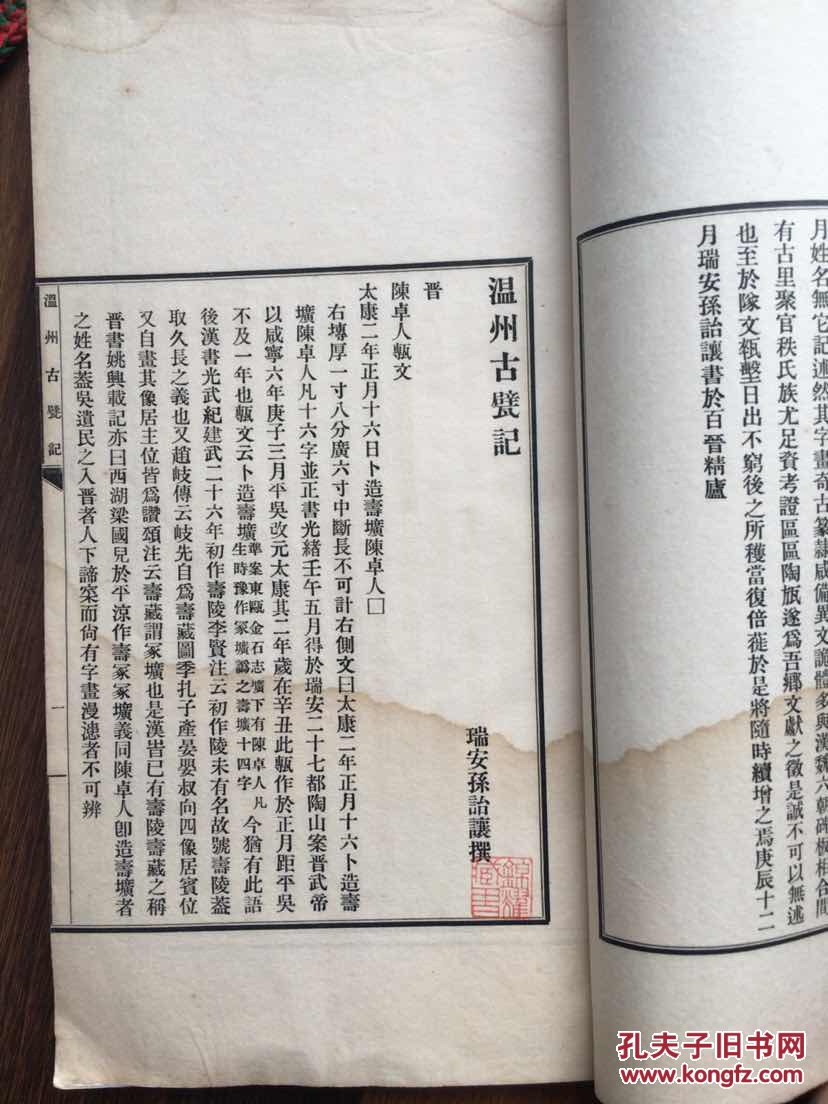 月姓名無它記述然其字畫奇古篆隸咸備異文詭體多與漢魏六朝碑板相合間
有古里聚官秩氏族尤足資考證區區陶旊遂爲吾鄉文獻之徵是誠不可以無述
也至於隊文瓴墼日出不窮後之所穫當復倍蓰於是將隨時續增之焉庚辰十二
月瑞安孫詒讓書於百晉精廬
温州古甓記
瑞安孫詒讓撰
晉
陳卓人甎文
太康二年正月十六日卜造壽壙陳卓人□
右塼厚一寸八分廣六寸中斷長不可計右側文曰太康二年正月十六卜造壽
壙陳卓人凡十六字並正書光緒壬午五月得於瑞安二十七都陶山案晉武帝
以咸寧六年庚子三月平吳改元太康其二年歲在辛丑此甎作於正月距平吳
不及一年也甎文云卜造壽壙準案東甌金石志壙下有陳卓人凡生時豫作冢壙謂之壽壙十四字今猶有此語
後漢書光武紀建武二十六年初作壽陵李賢注云初作陵未有名故號壽陵葢
取久長之義也又趙岐傳云岐先自爲壽藏圖季扎子產晏嬰叔向四像居賓位
又自畫其像居主位皆爲讚頌注云壽藏謂冢壙也是漢時已有壽陵壽藏之稱
晉書姚興載記亦曰西湖梁國兒於平涼作壽冢冢壙義同陳卓人卽造壽壙者
之姓名葢吳遺民之入晉者人下諦宷而尙有字畫漫漶者不可辨
溫州古甓記
一
錦燿
臧書
孔夫子旧书网
www.kongfz.com